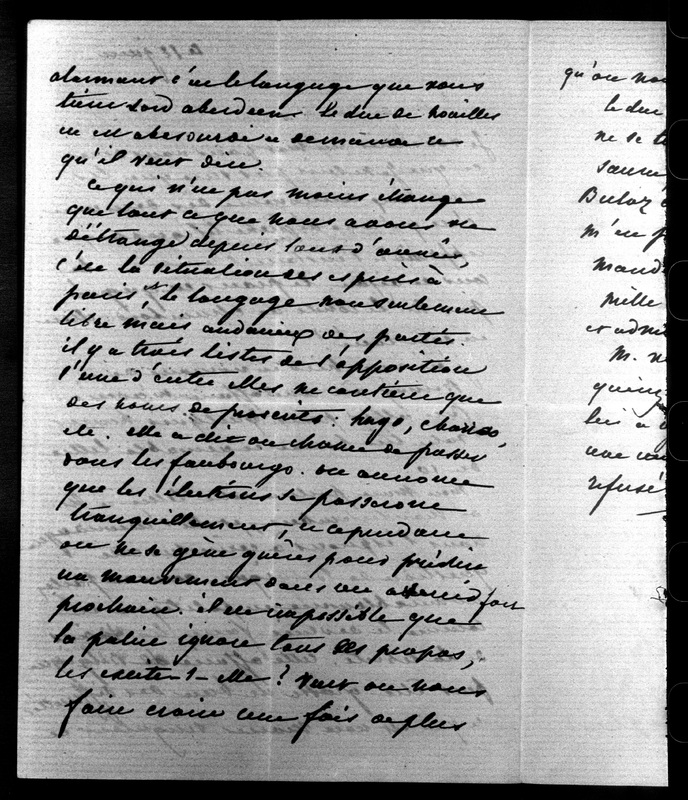 alarmant c'est le langage que nous
tient Lord aberdeen. Le duc de noailles
en est abasourdi et demande ce
qu'il veut dire.
ce qui n'est pas moins étrange
que tout ce que nous avons vu
d'étrange depuis tant d'années,
c'est la situation des esprits à
paris, et le langage non seulement
libre mais audacieux des partis.
il y a trois listes de l'opposition
l'une d'entre elles ne contient que
des noms de proscrits : hugo, charras,
etc. elle a dix chances de passer
dans les faubourgs. on annonce
que les élections se passeront
tranquillement, et cependant
on ne se gêne guères pour prédire
un mouvement dans un avenir fort
prochain. il est impossible que
la police ignore tous ces propos,
les excite-t-elle ? veut on nous
faire croire une fois de plus
qu'on
le duc
ne se
Buloz
m'en
mand
mille
et
M.
quinz
lui a
une
refusé